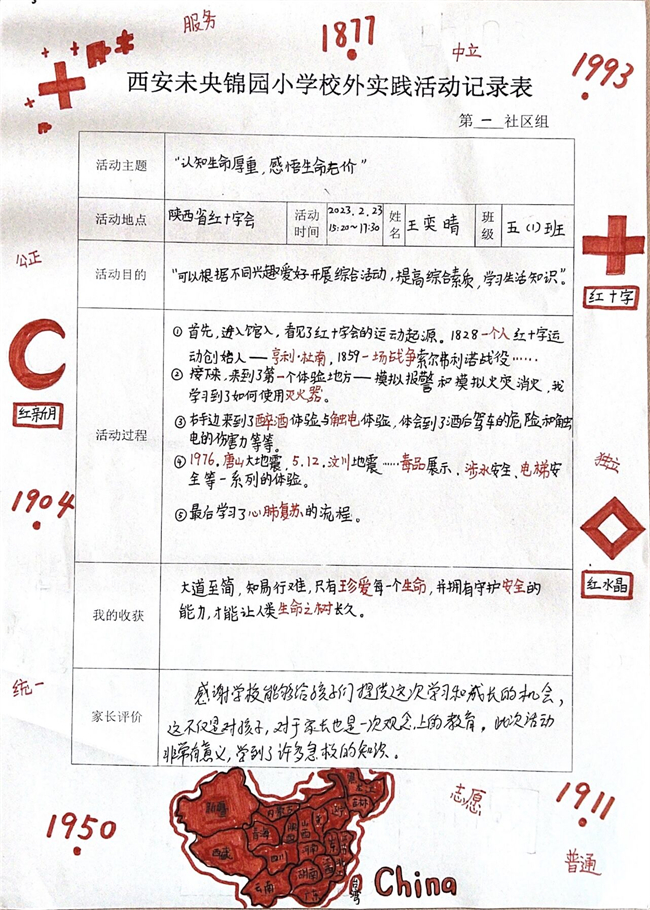 服务
1877
中立
1993
西安未央锦园小学校外实践活动记录表
第 一 社区组
活动主题
“认知生命厚重，感悟生命无价”
活动地点
陕西省红十字会
活动时间
2023.2.23
15:20~17:30
姓名
王奕晴
班级
五(1)班
公正
活动目的
“可以根据不同兴趣爱好开展综合活动，提高综合素质，学习生活知识”。
红十字
红新月
活动过程
①首先，进入馆入，看见了红十字会的运动起源。1828一个人红十字运
动创始人——亨利·杜南，1859一场战争索尔弗利诺战役……
②接下来，来到了第一个体验地方——模拟报警和模拟火灾消火，我
学习到了如何使用灭火器。
③右手边来到了醉酒体验与触电体验，体会到了酒后驾车的危险和触
电的伤害力等等。
④1976.唐山大地震，5.12.汶川地震……毒品展示、涉水安全、电梯安
全等一系列的体验。
⑤最后学习了心肺复苏的流程。
1904
独立
红水晶
我的收获
大道至简，知易行难，只有珍爱每一个生命，并拥有守护安全的
能力，才能让人类生命之树长久。
统一
家长评价
感谢学校能够给孩子们提供这次学习和成长的机会，
这不仅是对孩子，对于家长也是一次观念上的教育，此次活动
非常有意义，学到了许多急救的知识。
1950
新疆
西藏
青海
内蒙古
四川
云南
陕西
山西
河南
湖南
广东
吉林
台湾
China
志愿
1911
普通